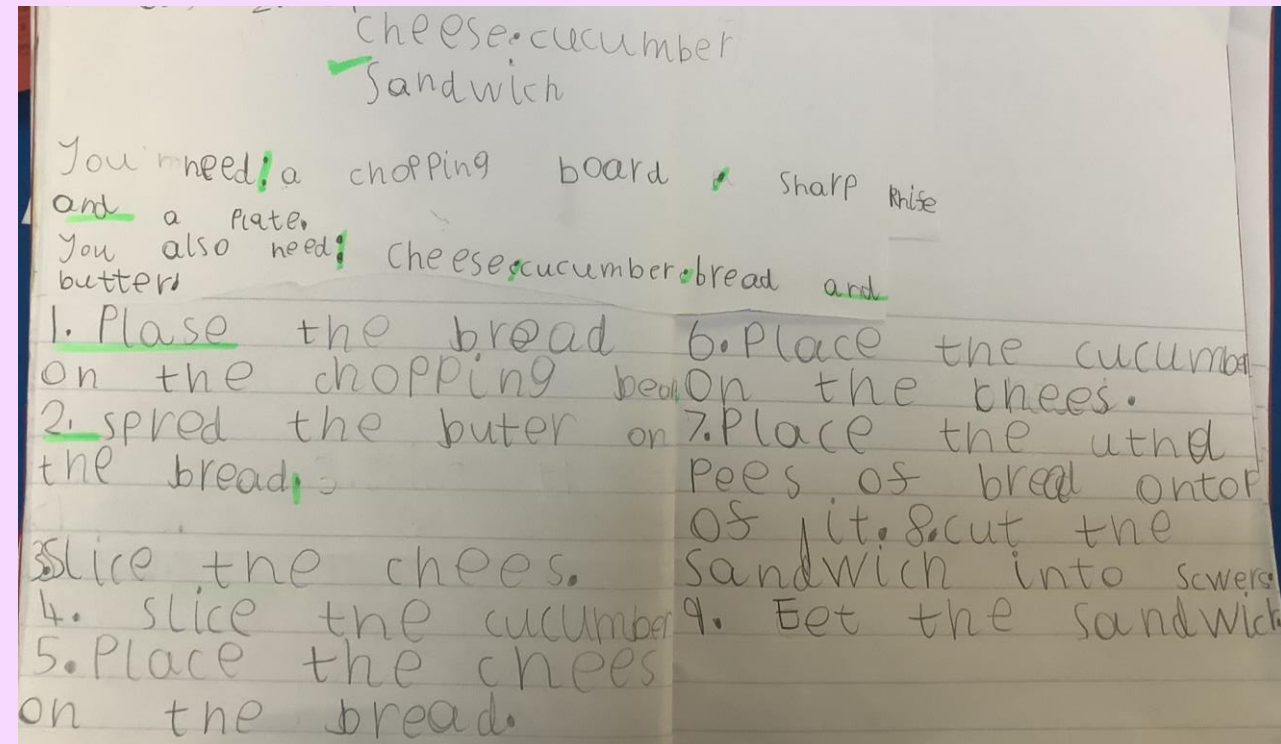 cheese.cucumber
Sandwich
You need: a chopping board, sharp knife
and a plate.
You also need: cheese,cucumber,bread and
butter.
1. Plase the bread
on the chopping
2. spred the buter on
the bread.
3.Slice the chees.
4. slice the cucumber
5.Place the chees
on the bread.
6.Place the cucumber
on the chees.
7.Place the uthd
pees of bread ontop
of it. 8.cut the
sandwich into scwers.
9. Eet the sandwich.